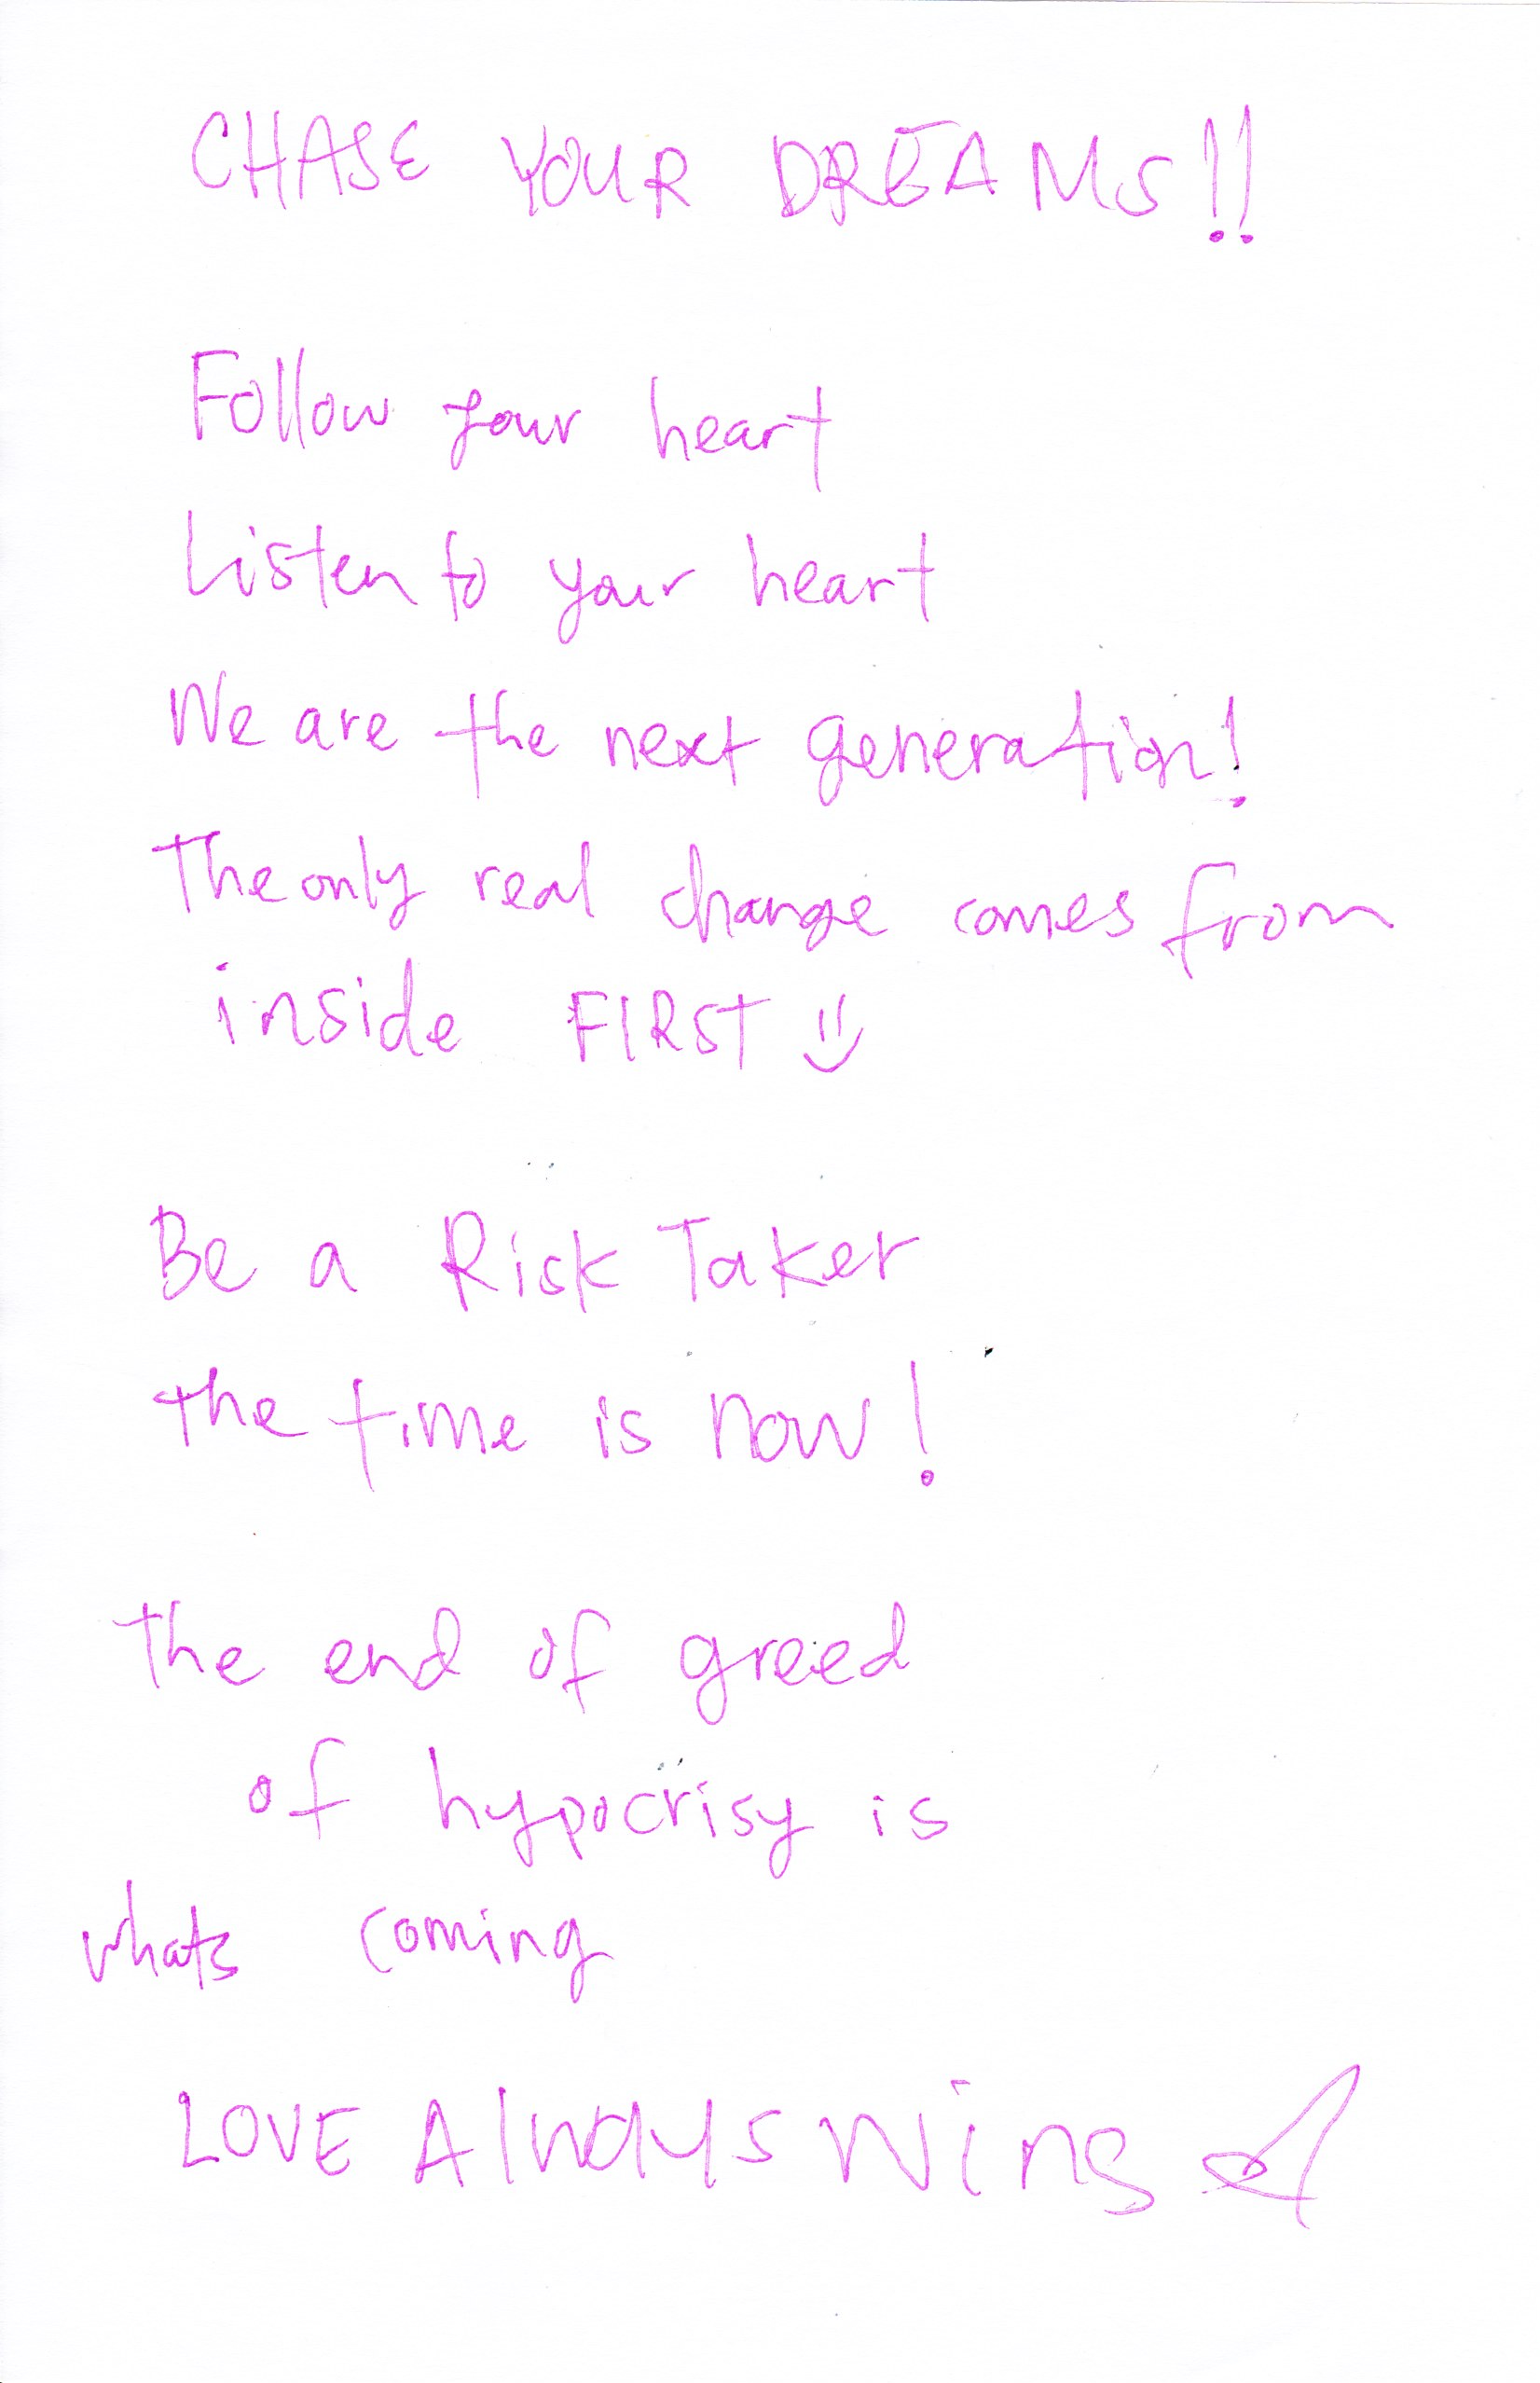 CHASE YOUR DREAMS!!
Follow your heart
Listen to your heart
We are the next generation!
The only real change comes from
inside FIRST
Be a Risk Taker
the time is now!
The end of greed
of hypocrisy is
whats coming
LOVE Always Wins